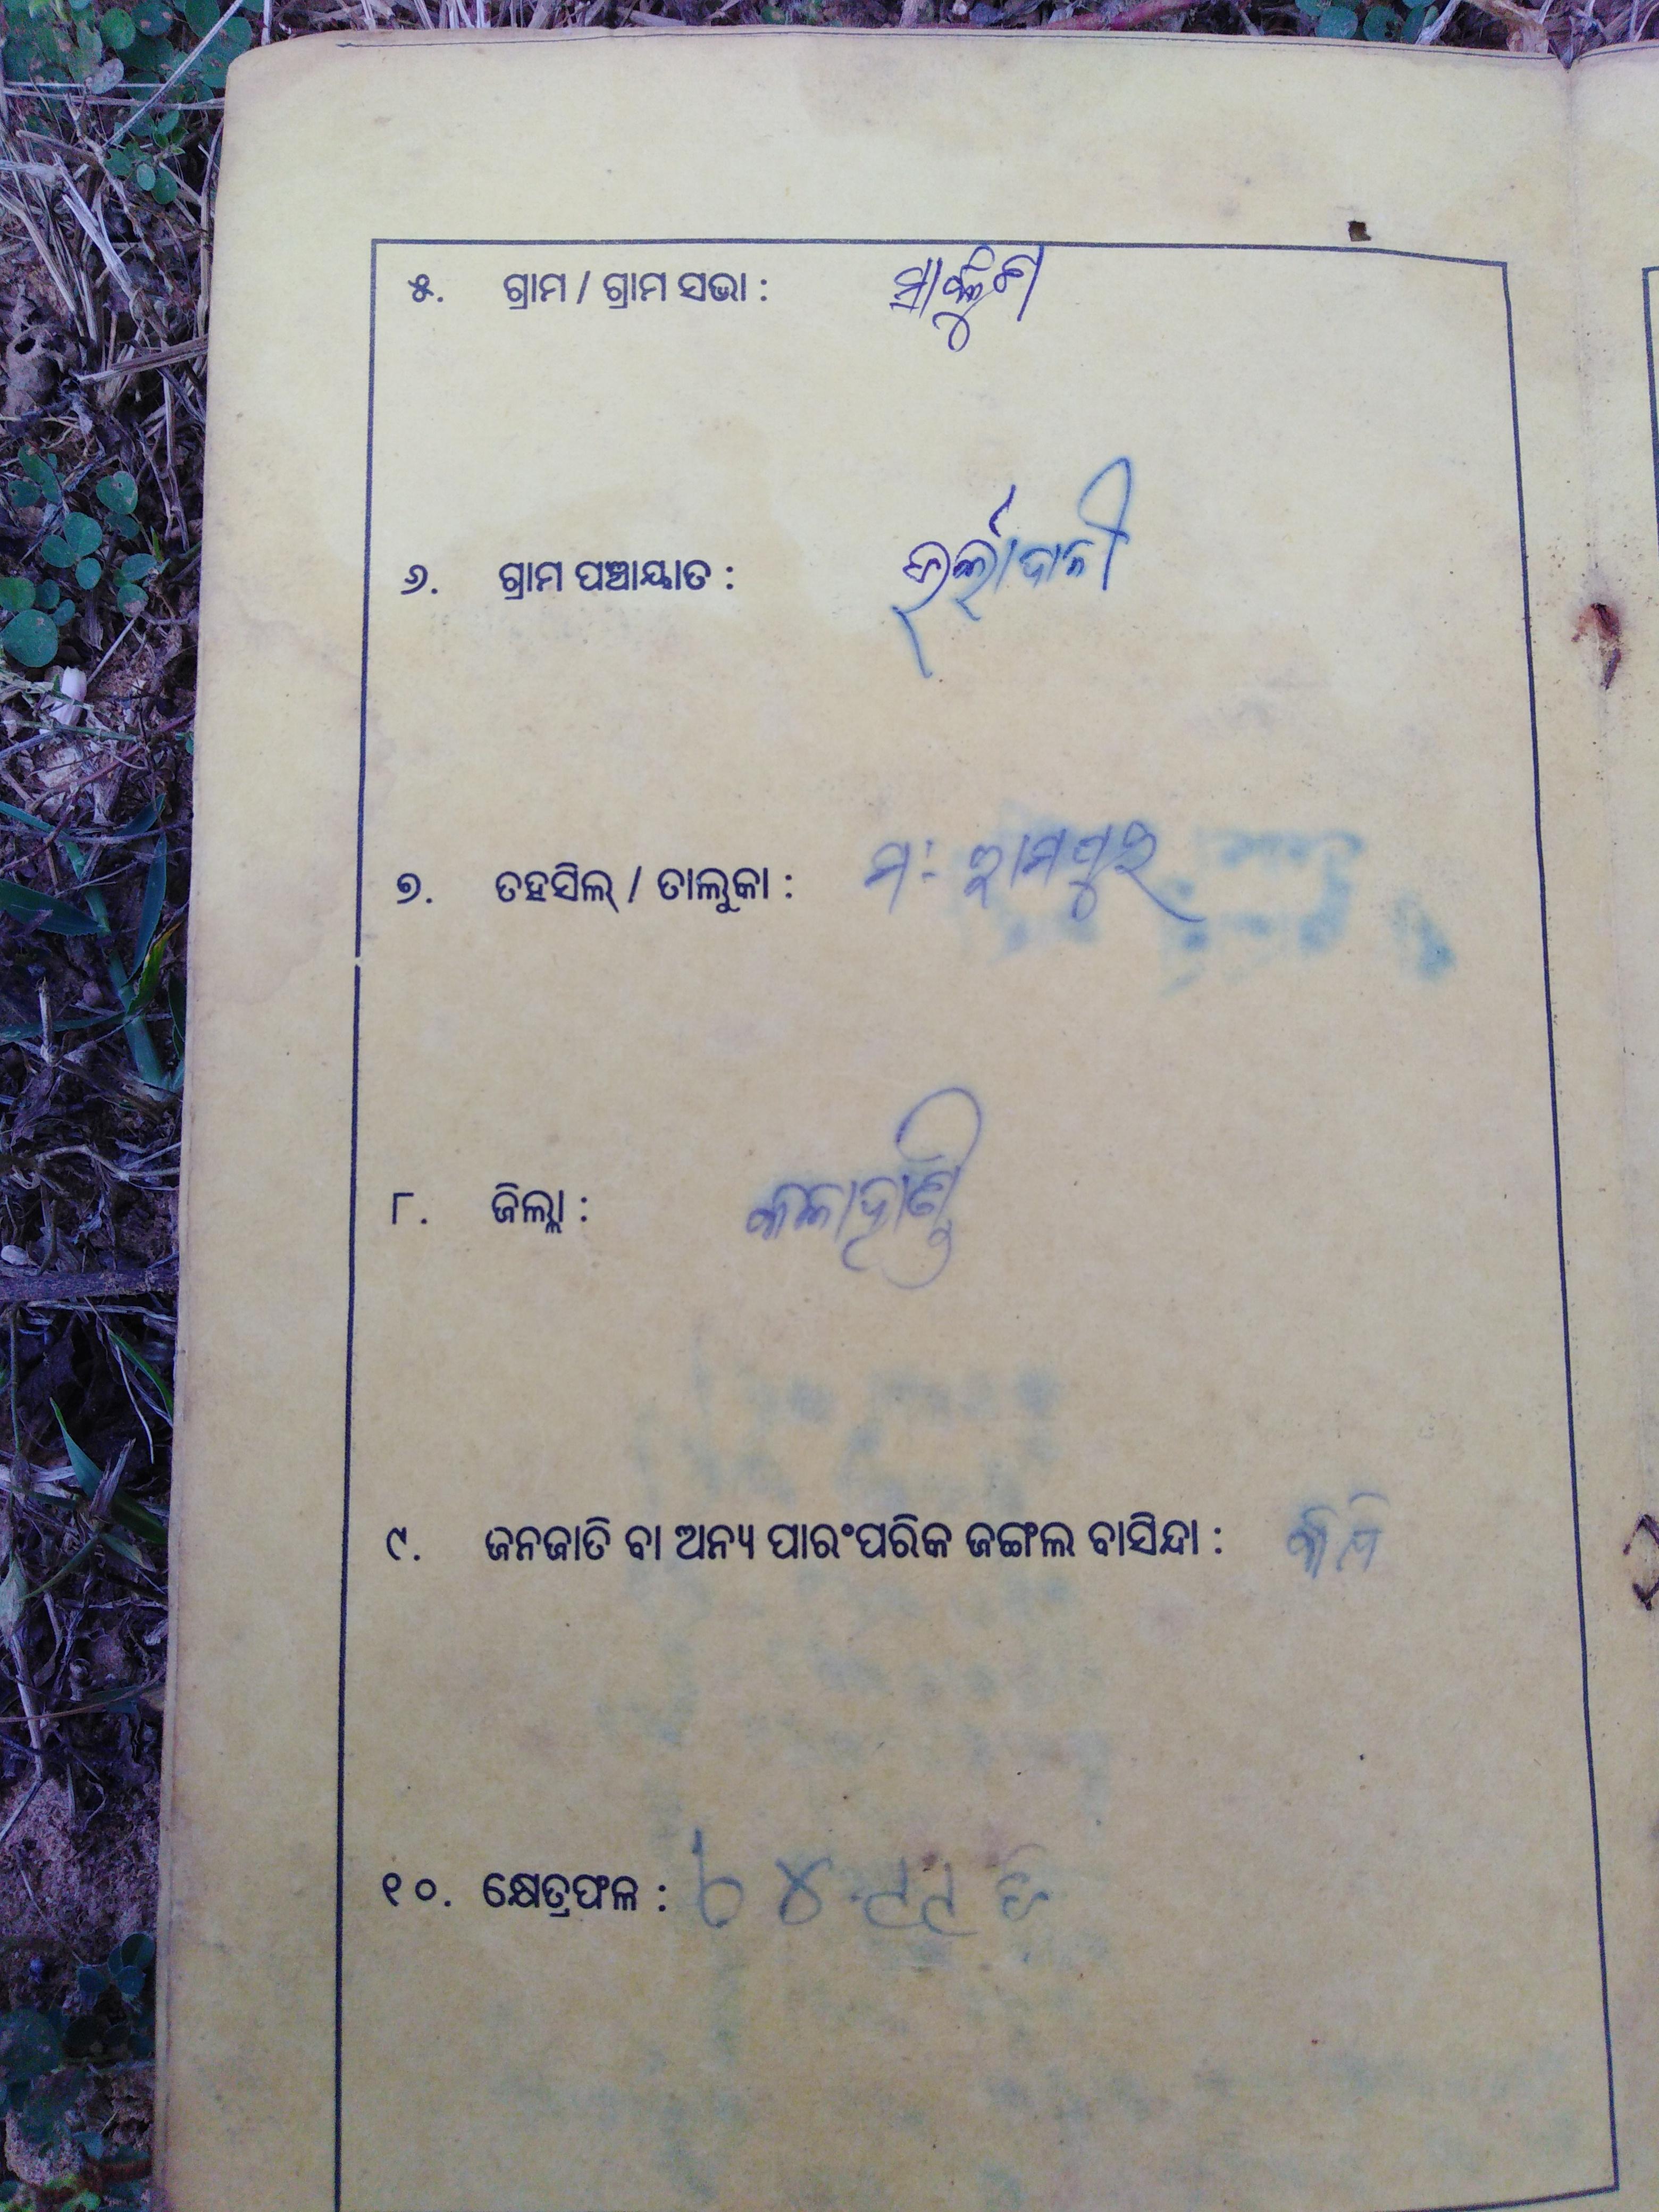 ୫. ଗ୍ରାମ / ଗ୍ରାମ ସଭା :
୬. ଗ୍ରାମ ପଞ୍ଚାୟାତ :
୭. ତହସିଲ୍ / ତାଲୁକା : ମ: ରାମପୁର
୮. ଜିଲ୍ଲା : କଳାହାଣ୍ଡି
୯. ଜନଜାତି ବା ଅନ୍ୟ ପାରଂପରିକ ଜଙ୍ଗଲ ବାସିନ୍ଦା :
୧୦. କ୍ଷେତ୍ରଫଳ :